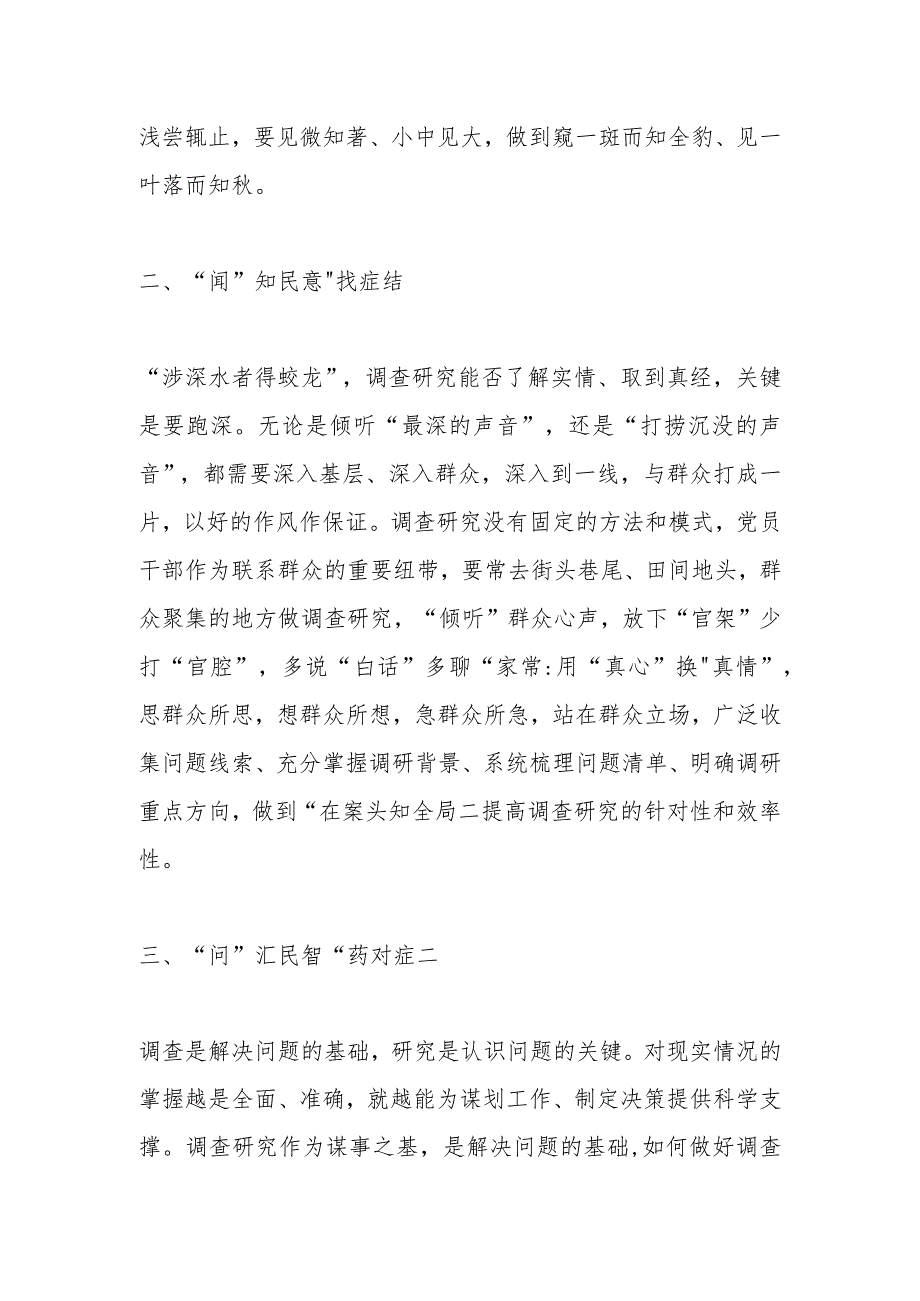 浅尝辄止，要见微知著、小中见大，做到窥一斑而知全豹、见一
叶落而知秋。
二、“闻”知民意"找症结
“涉深水者得蛟龙”，调查研究能否了解实情、取到真经，关键
是要跑深。无论是倾听“最深的声音”，还是“打捞沉没的声
音”，都需要深入基层、深入群众，深入到一线，与群众打成一
片，以好的作风作保证。调查研究没有固定的方法和模式，党员
干部作为联系群众的重要纽带，要常去街头巷尾、田间地头，群
众聚集的地方做调查研究，“倾听”群众心声，放下“官架”少
打“官腔”，多说“白话”多聊“家常:用“真心”换"真情”，
思群众所思，想群众所想，急群众所急，站在群众立场，广泛收
集问题线索、充分掌握调研背景、系统梳理问题清单、明确调研
重点方向，做到“在案头知全局二提高调查研究的针对性和效率
性。
三、“问”汇民智“药对症二
调查是解决问题的基础，研究是认识问题的关键。对现实情况的
掌握越是全面、准确，就越能为谋划工作、制定决策提供科学支
撑。调查研究作为谋事之基，是解决问题的基础,如何做好调查